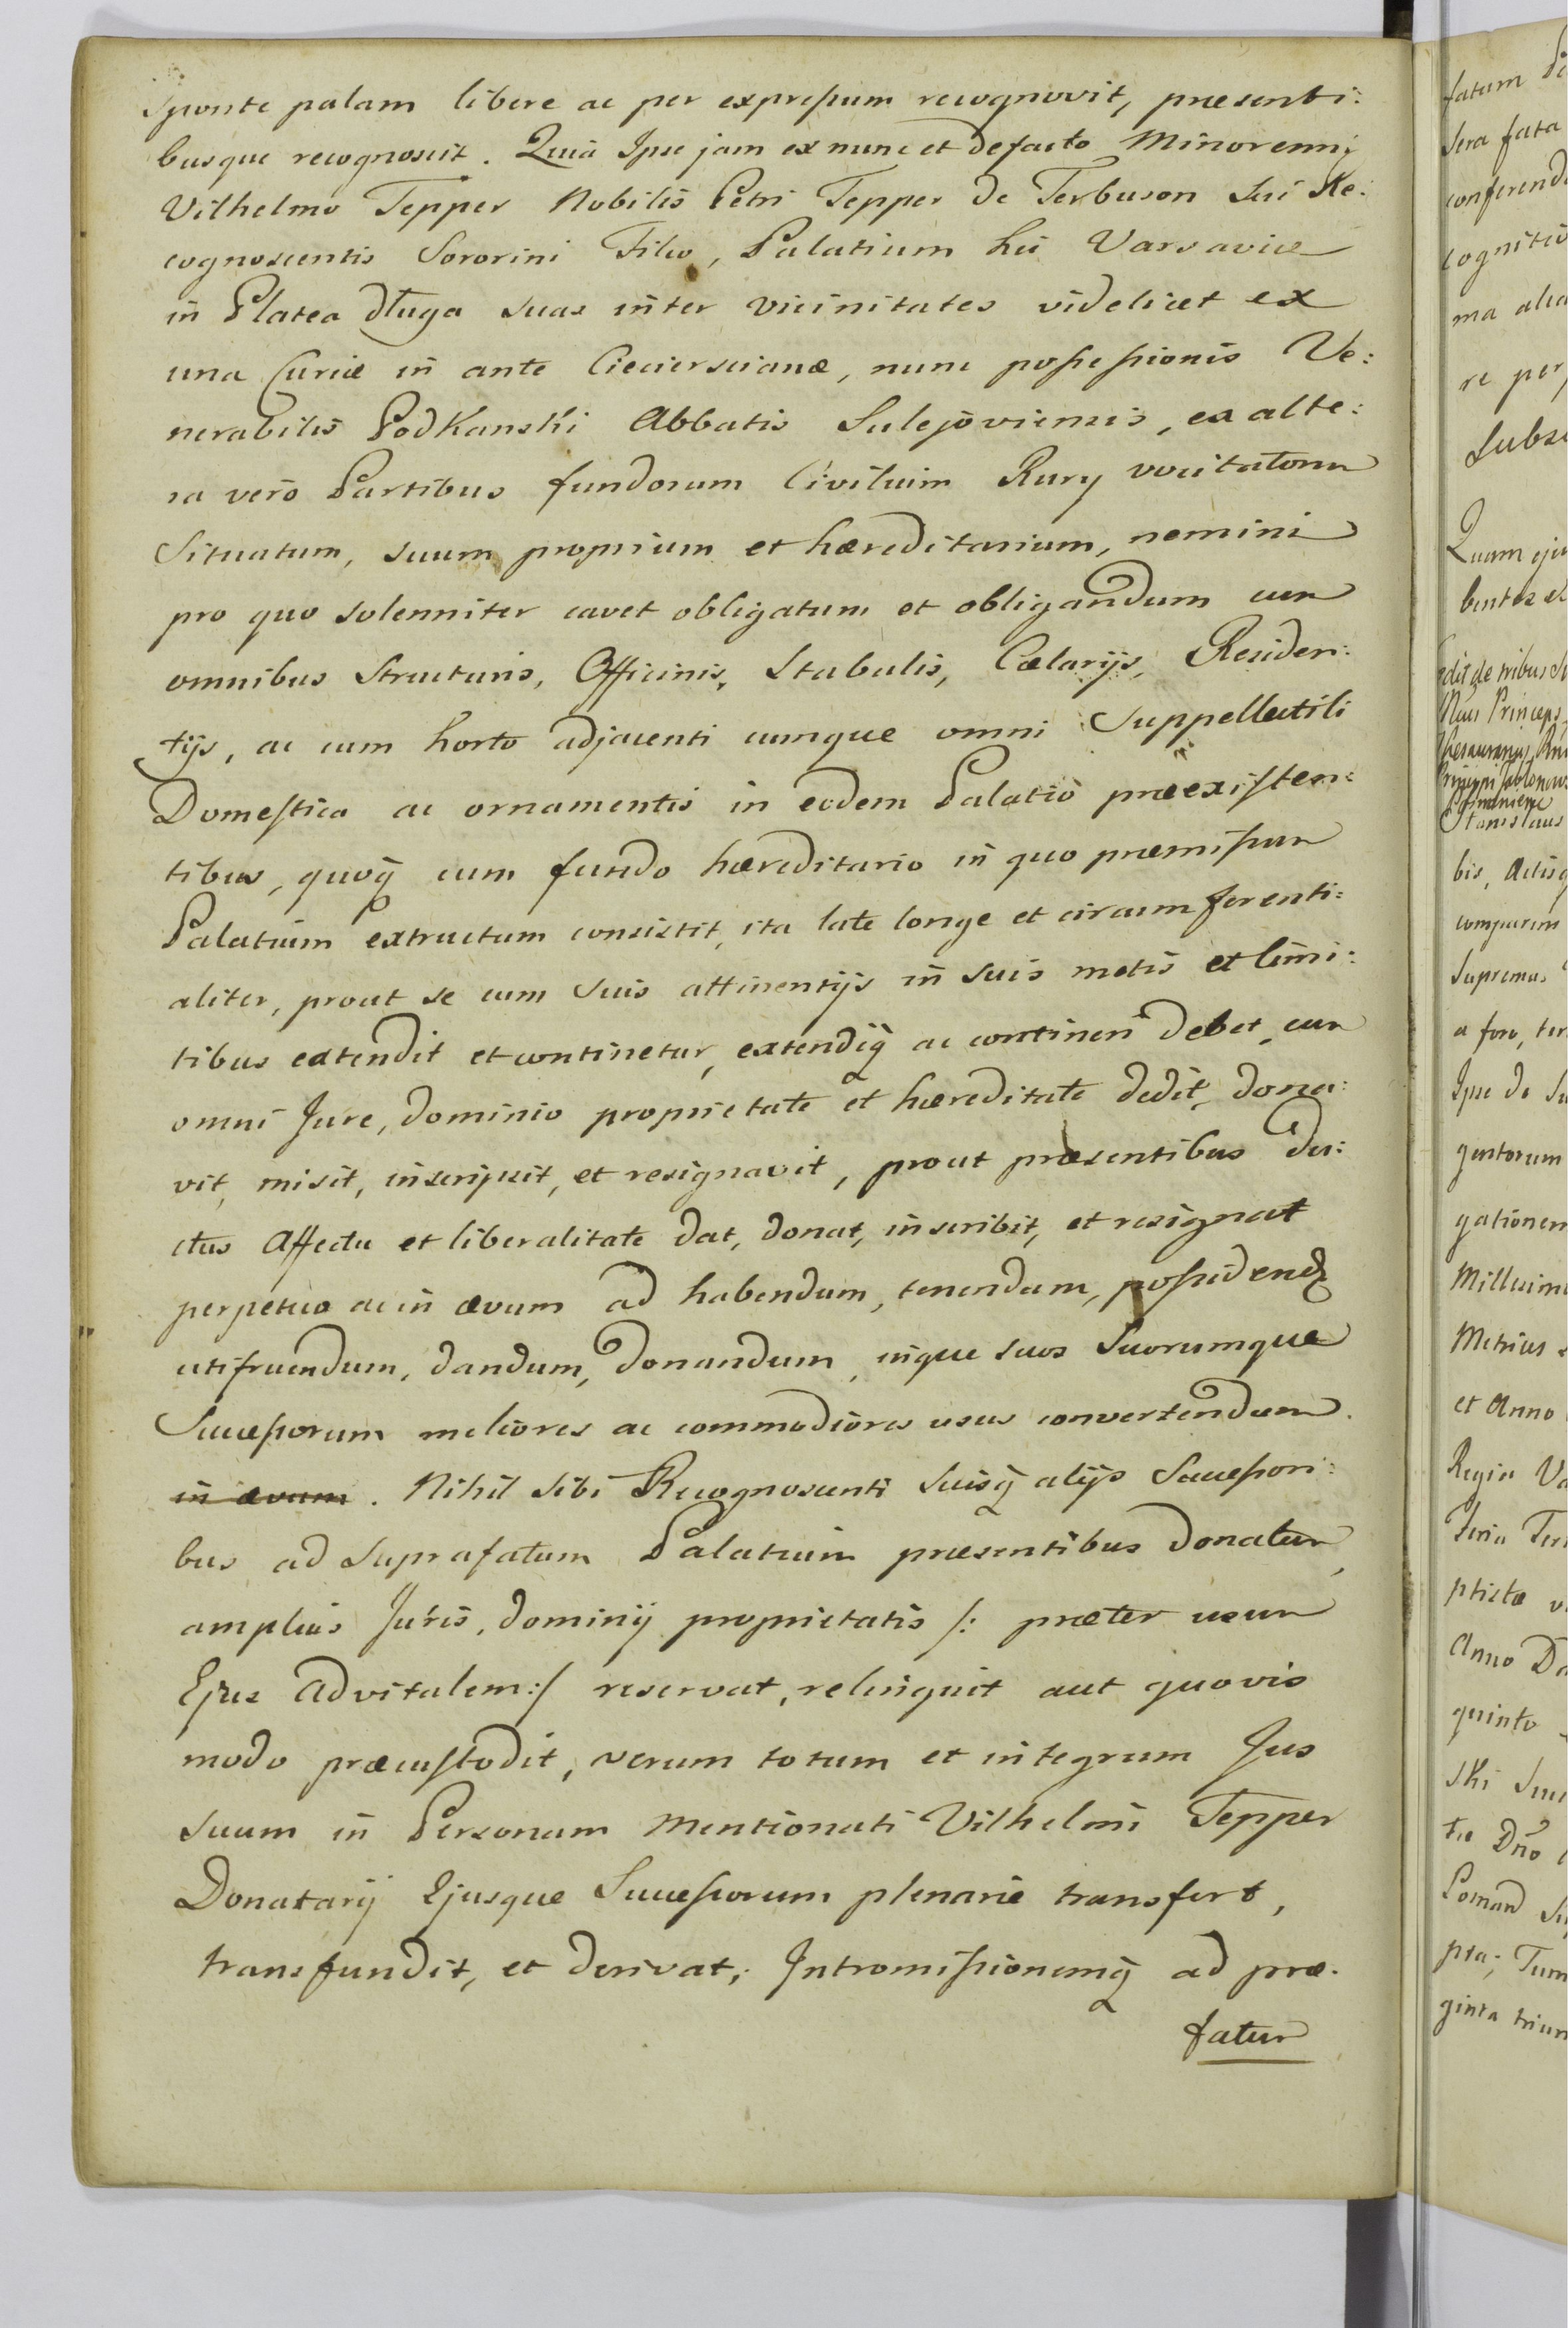 Sponte palam libere ac per expressum recognovit, præsenti:
busque recognoscit. Quia Ipse jam ex nunc et de facto Minorenni
Vilhelmo Tepper Nobilis Petri Tepper de Ferbuson Sui Re:
cognoscentis Sororini Filio, Palatium hic Varsaviæ
in Platea długa suas inter vicinitates videlicet ex
una Curiæ in ante Ciecierscianæ, nunc possessionis Ve:
nerabilis Podkanski Abbatis Sulejoviensis, ex alte:
ra vero Partibus fundorum Civilium Rury vocitatorum
Situatum, suum proprium et hæreditarium, nemini
pro quo solenniter cavet obligatum et obligandum cum
omnibus Structuris, Officinis, Stabulis, Cælarijs, Residen:
tijs, ac cum horto adjacenti cumque omni Suppellectili
Domestica ac ornamentis in eodem Palatio præexisten:
tibus, quoq cum fundo hæreditario in quo præmissum
Palatium extructum consistit, ita late longe et circumferenti:
aliter, prout se cum suis attinentijs in suis metis et limi:
tibus extendit et continetur, extendiq ac contineri debet, cum
omni Jure, dominio proprietate et hæreditate dedit, dona:
vit, misit, inscripsit, et resignavit, prout præsentibus du:
ctus Affectu et liberalitate dat, donat, inscribit, et resignat
perpetuo ac in ævum ad habendum, tenendum, possidend
utifruendum, dandum, donandum, inque suos Suorumque
Successorum meliores ac commodiores usus convertendum.
in ævum. Nihil sibi Recognoscenti Suisq alijs Successori:
bus ad Suprafatum Palatium præsentibus donatum,
amplius Juris, dominij proprietatis /: præter usum
Ejus advitalem :/ reservat, relinquit aut quovis
modo præcustodit, verum totum et integrum Jus
suum in Personam Mentionati Vilhelmi Tepper
Donatarij Ejusque Successorum plenarie transfert,
transfundit, et derivat; Intromissionemq ad præ.
fatum
fatum
Sera fata
conferend
cognitio
ma alia
re per
Subsc
Quam
bentes
edit de tribus
Princeps
Stanislaus
bis, Actisq
comparens
Supremus
a foro,
Ipse de
gentorum
gationem
Millesim
Metrices
et Anno
Regia Va
Feria
ptistæ
Anno
quinto
ski
Dño
pta; Tum
ginta trium